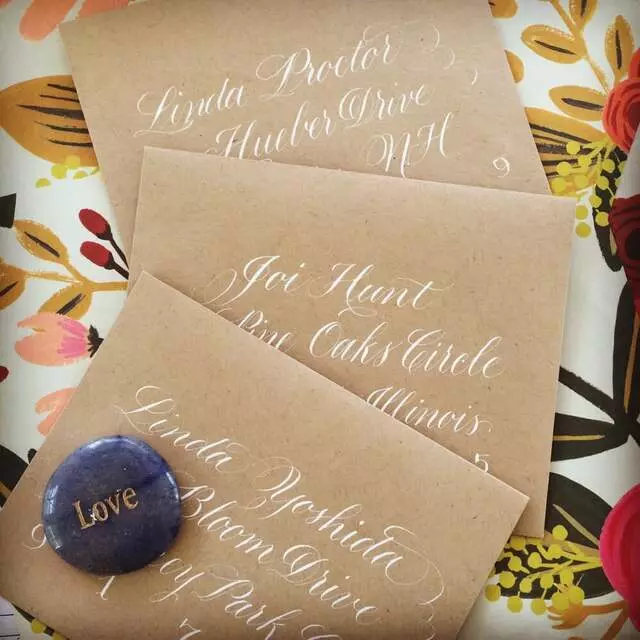 Linda Proctor
Hueber Drive
NH
9
Joi Hunt
Pine Oaks Circle
Illinois
5
Linda Yoshida
Bloom Drive
oy Park
Love